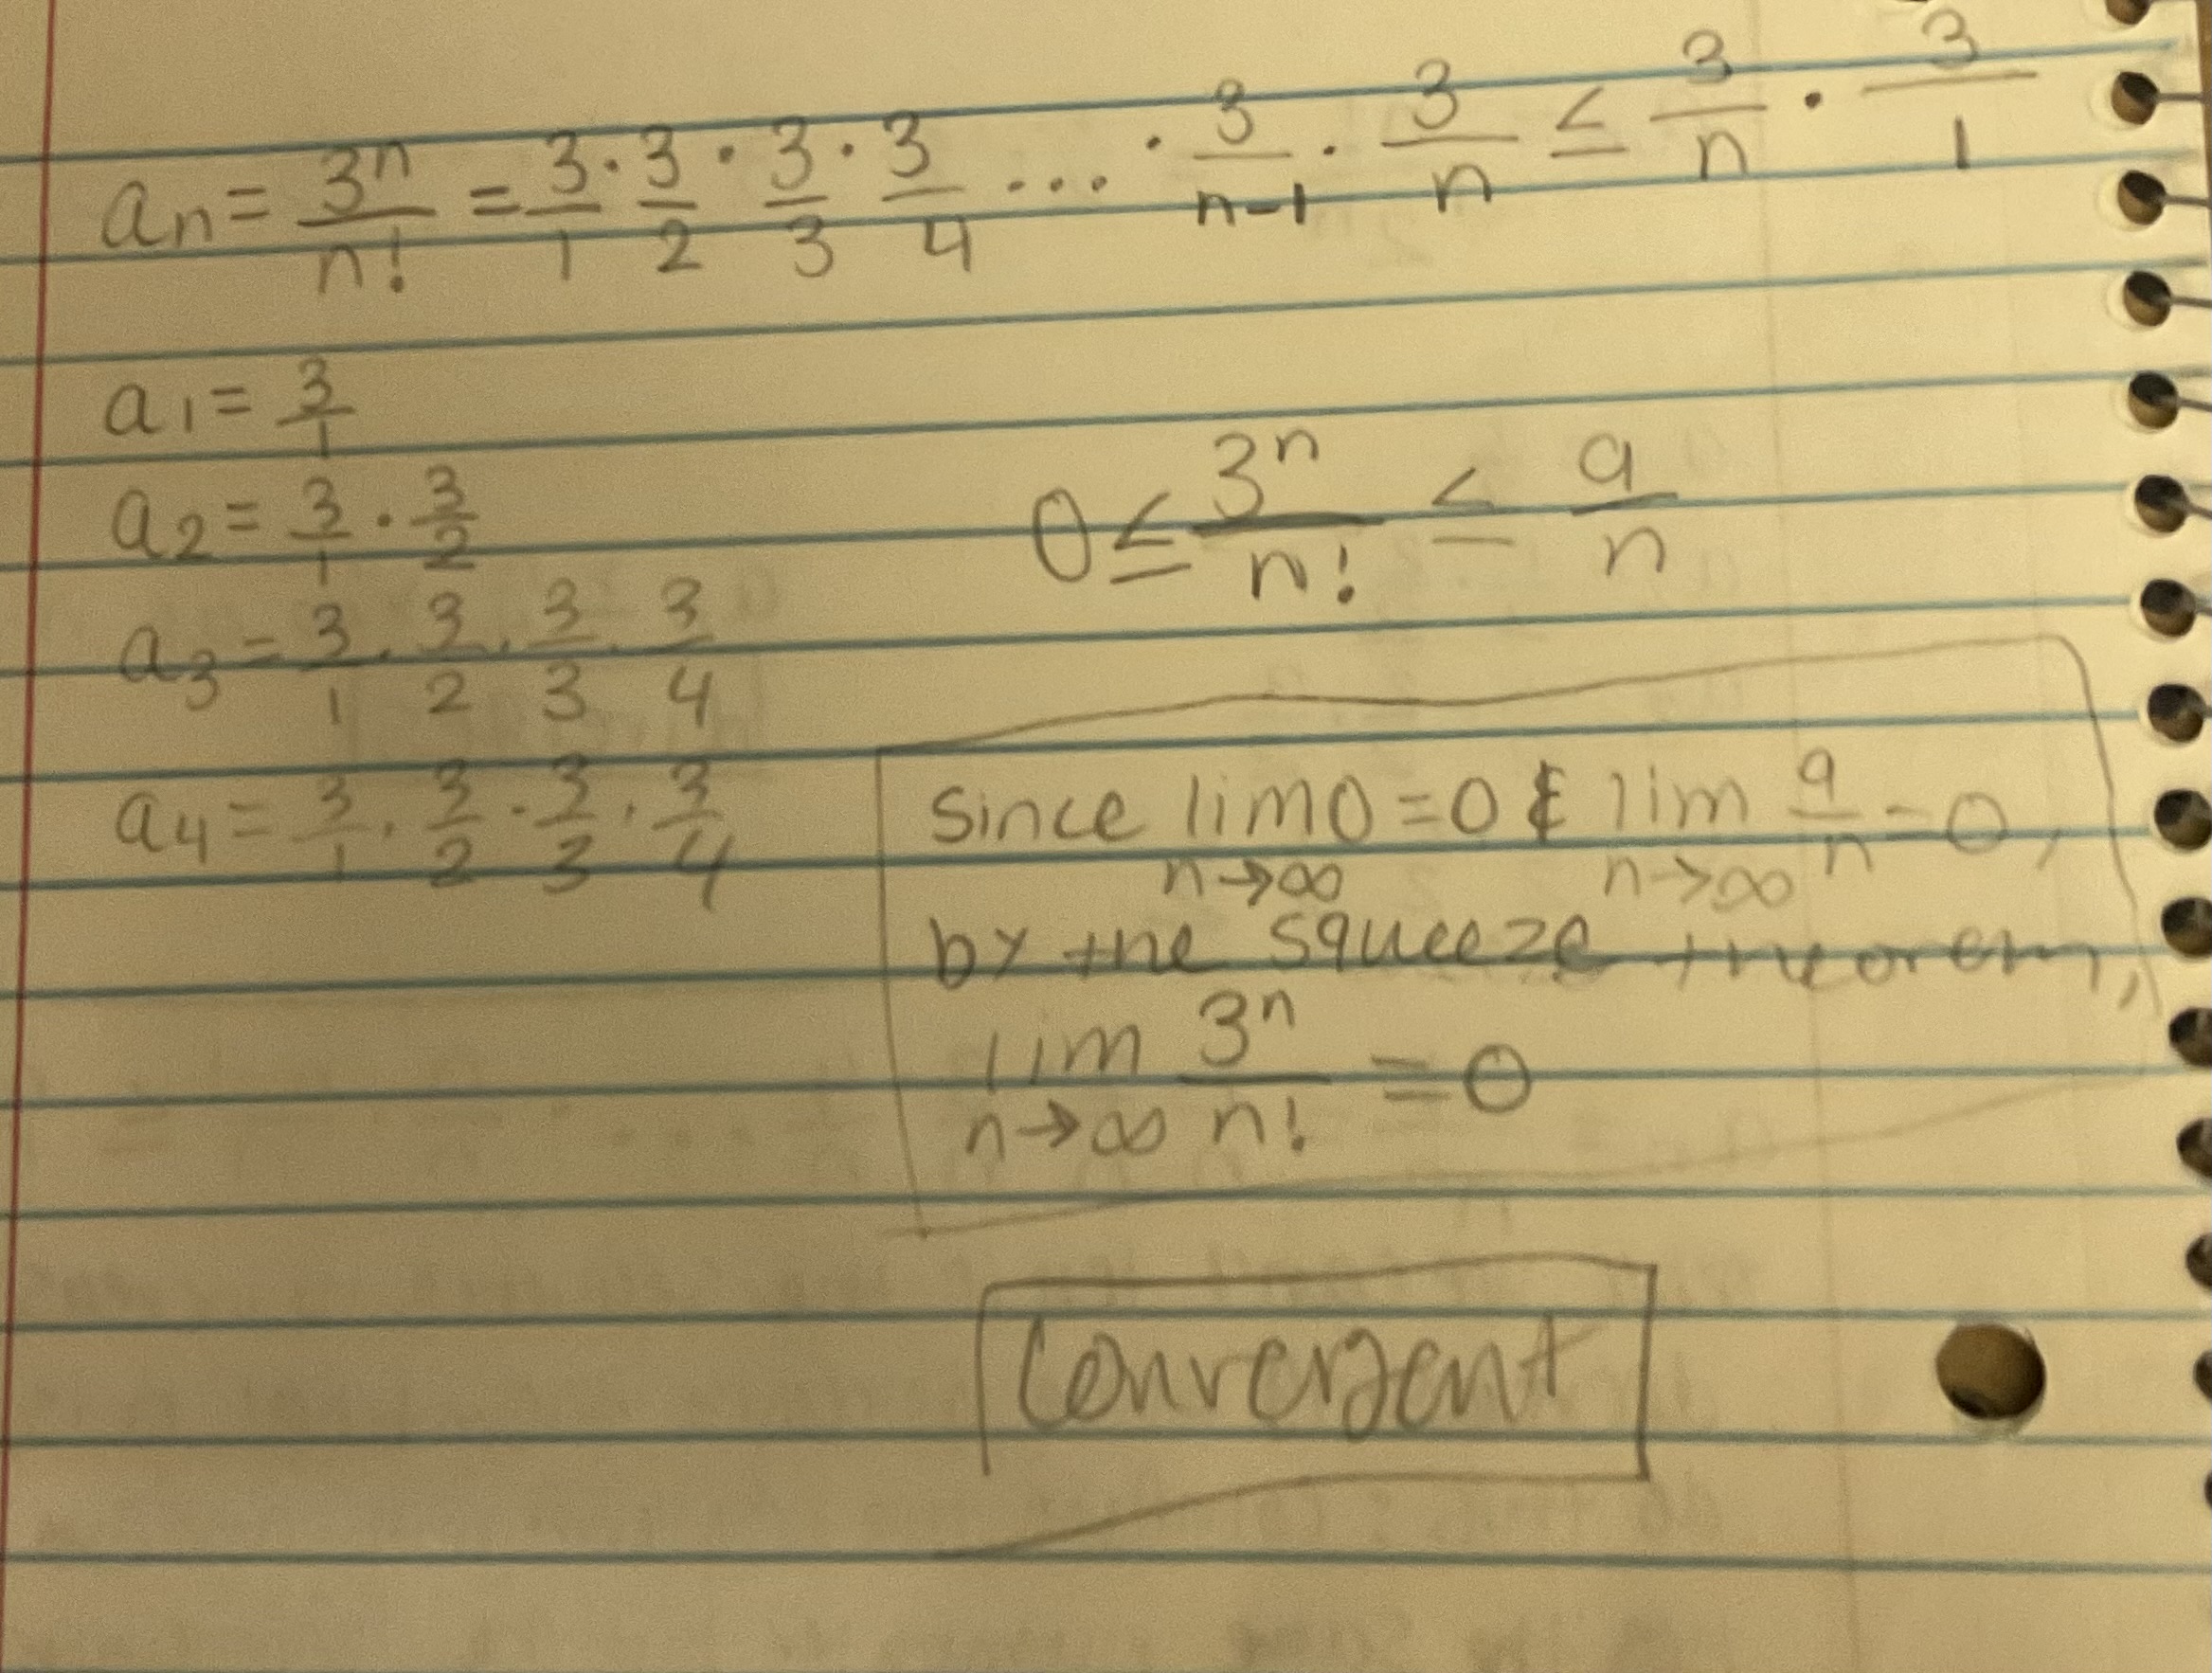 an = 3ⁿ/n! = 3/1 · 3/2 · 3/3 · 3/4 ... · 3/n-1 · 3/n ≤ 3/n · 3/1
a1 = 3/1
a2 = 3/1 · 3/2
0 ≤ 3ⁿ/n! ≤ 9/n
a3 = 3/1 · 3/2 · 3/3 · 3/4
a4 = 3/1 · 3/2 · 3/3 · 3/4
since lim n→∞ 0 = 0 & lim n→∞ 9/n = 0,
by the squeeze theorem,
lim n→∞ 3ⁿ/n! = 0
Convergent